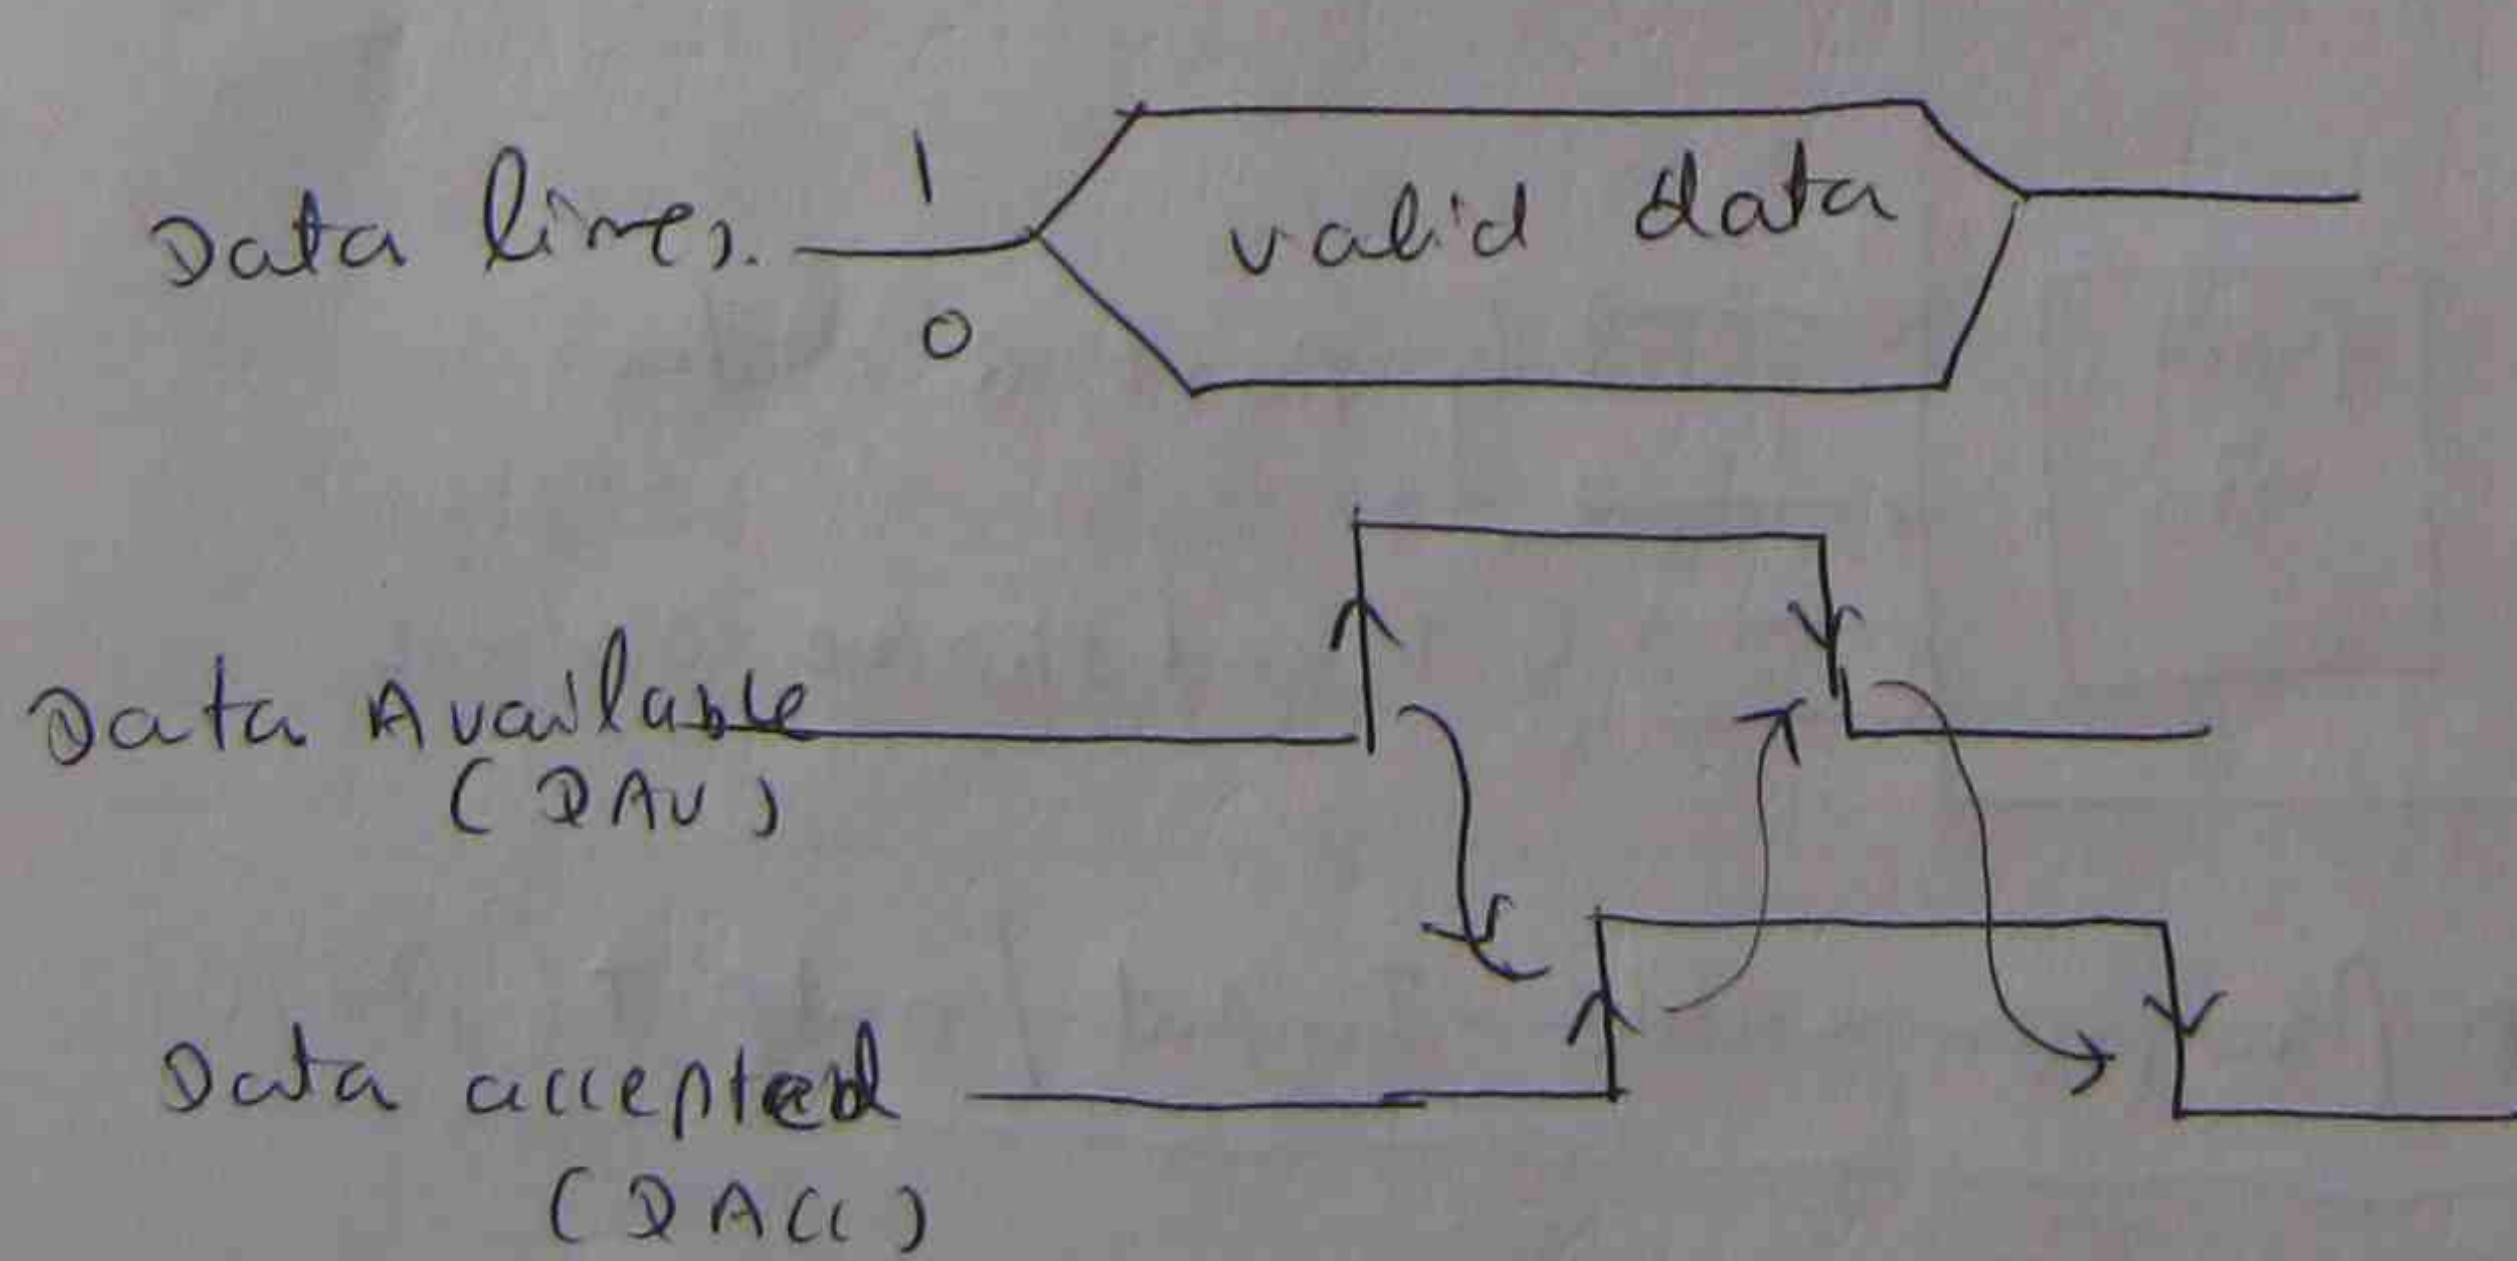 Data lines.
1
0
valid data
Data Available
(DAV)
Data accepted
(DACC)